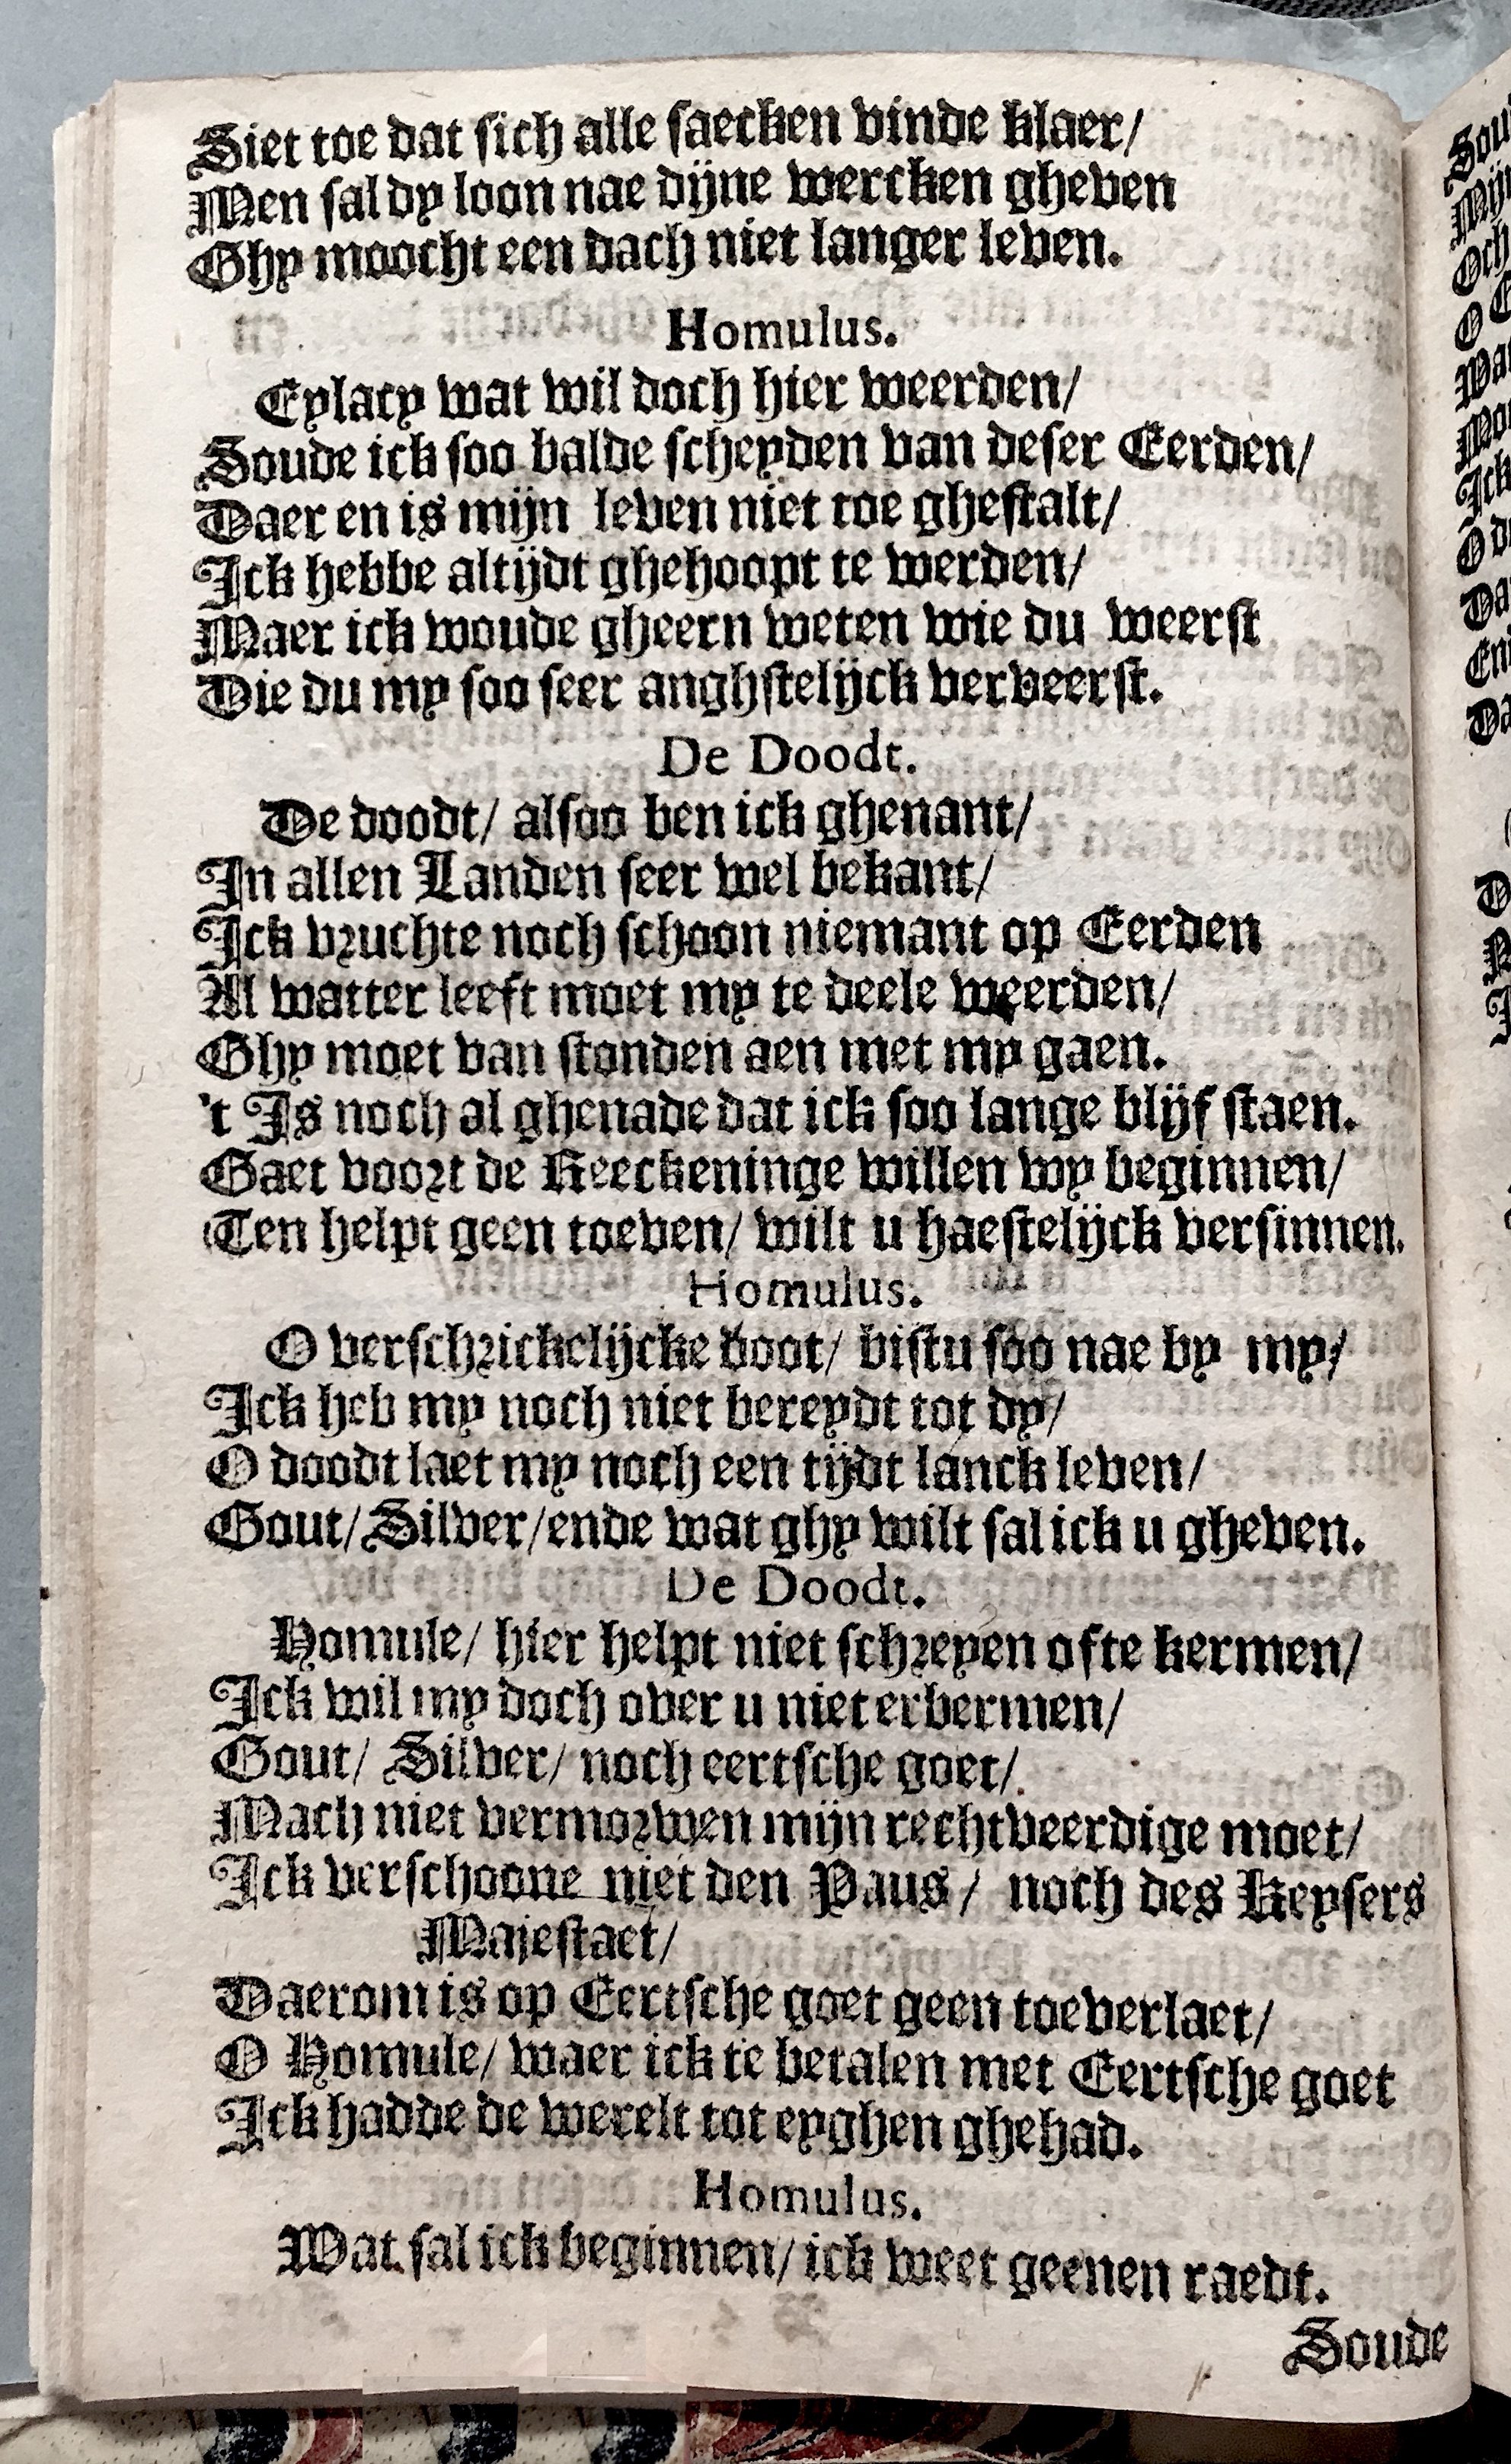 Siet toe dat sich alle saecken vinde klaer/
Men sal dy loon nae dijne wercken gheven
Ghy moocht een dach niet langer leven.
Homulus.
Eylacy wat wil doch hier weerden/
Soude ick soo balde scheyden van deser Eerden/
Daer en is mijn leven niet toe ghestalt/
Ick hebbe altijdt ghehoopt te werden/
Maer ick woude gheern weten wie du weerst
Die du my soo seer anghstelijck verveerst.
De Doodt.
De doodt/ alsoo ben ick ghenant/
In allen Landen seer wel bekant/
Ick vruchte noch schoon niemant op Eerden
Al watter leeft moet my te deele weerden/
Ghy moet van stonden aen met my gaen.
't Is noch al ghenade dat ick soo lange blijf staen.
Gaet voort de Reeckeninge willen wy beginnen/
Ten helpt geen toeven/ wilt u haestelijck versinnen.
Homulus.
O verschrickelijcke doot/ bistu soo nae by my/
Ick heb my noch niet bereydt tot dy/
O doodt laet my noch een tijdt lanck leven/
Gout/ Silver/ ende wat ghy wilt sal ick u gheven.
De Doodt.
Homule/ hier helpt niet schreyen ofte kermen/
Ick wil my doch over u niet erbermen/
Gout/ Silver/ noch eertsche goet/
Mach niet vermorwen mijn rechtveerdige moet/
Ick verschoone niet den Paus/ noch des Keysers
Majestaet/
Daerom is op Eertsche goet geen toeverlaet/
O Homule/ waer ick te betalen met Eertsche goet
Ick hadde de werelt tot eyghen ghehad.
Homulus.
Wat sal ick beginnen/ ick weet geenen raedt.
Soude